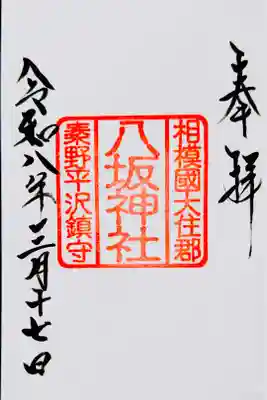 奉拝
相模國大住郡
八坂神社
秦野平沢鎮守
令和八年三月十七日